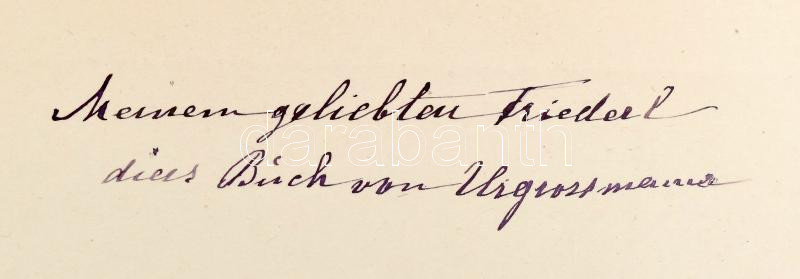 Meinem geliebten Friederl
darabanth
dies Buch von Urgrossmama